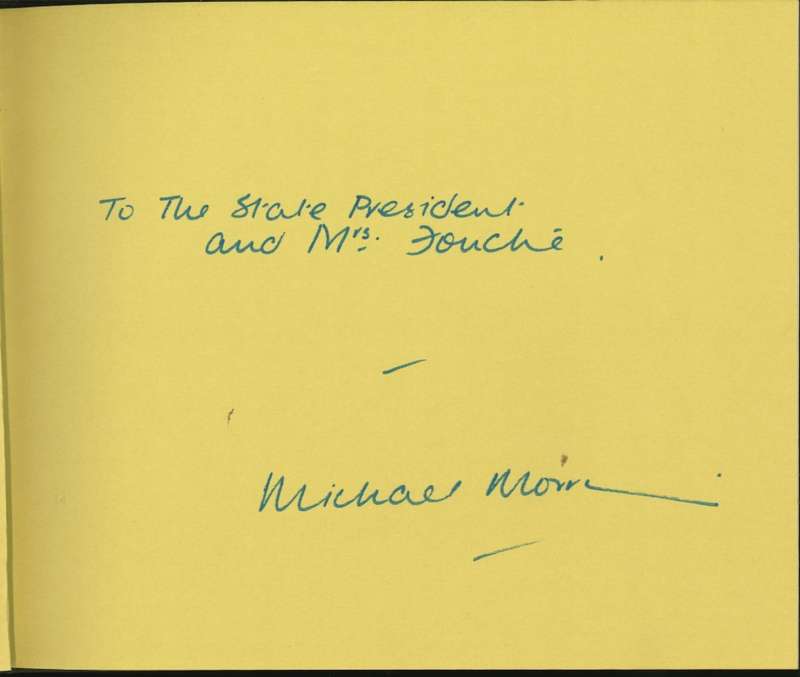 To The State President
and Mrs. Fouché.
Michael Morris